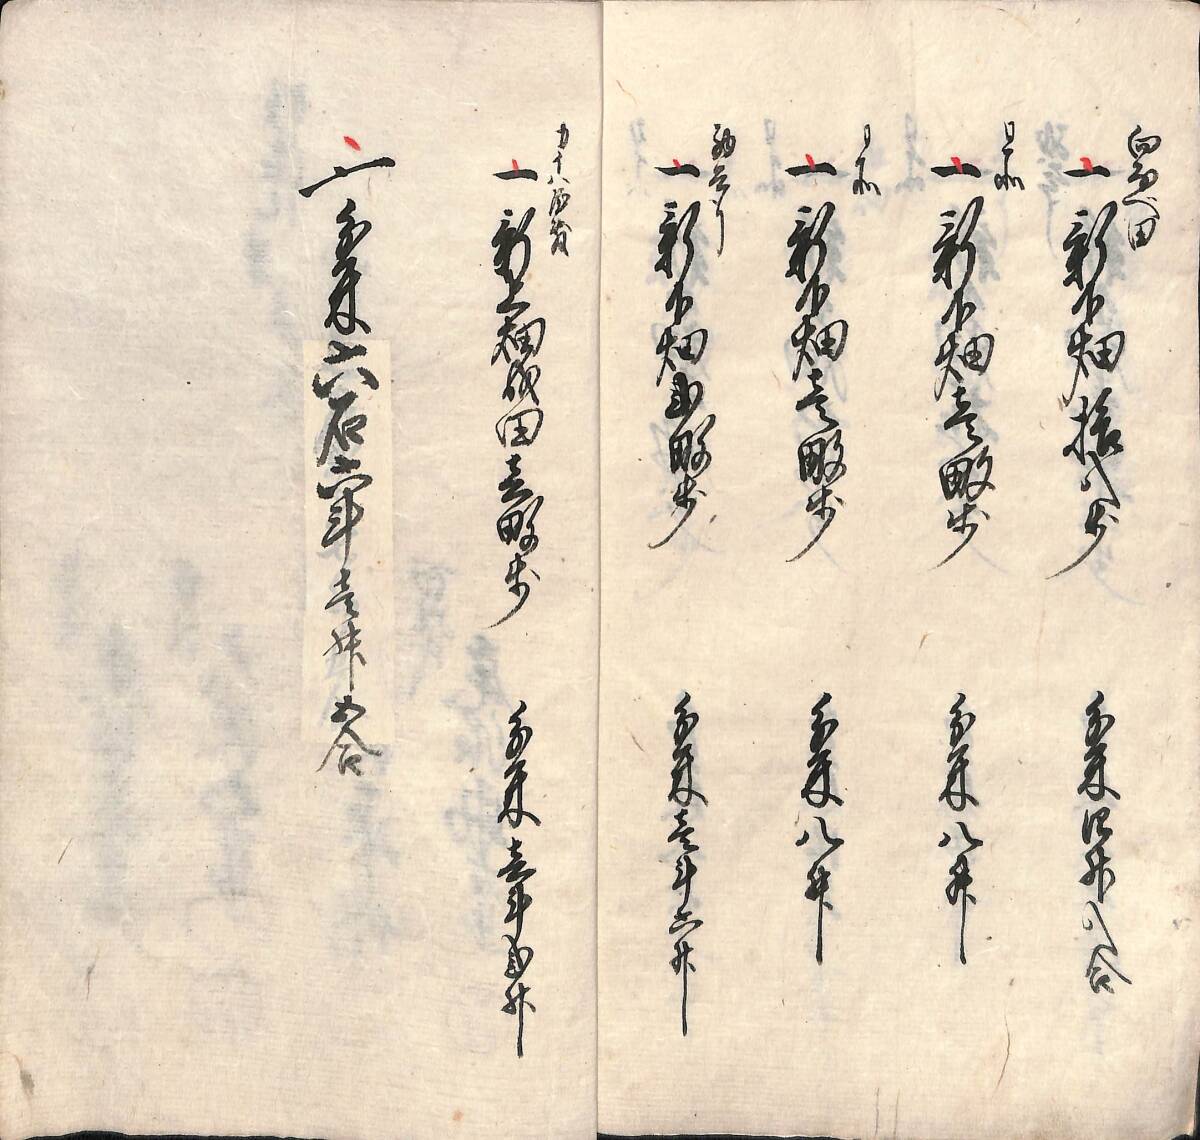 一 新下畑拾八歩
分米四升八合
同所
一 新下畑壱畝歩
分米八升
同所
一 新下畑壱畝歩
分米八升
一 新下畑弐畝歩
分米壱斗六升
一 新上畑成田壱畝歩
分米壱斗弐升
一 分米六石六斗壱升五合